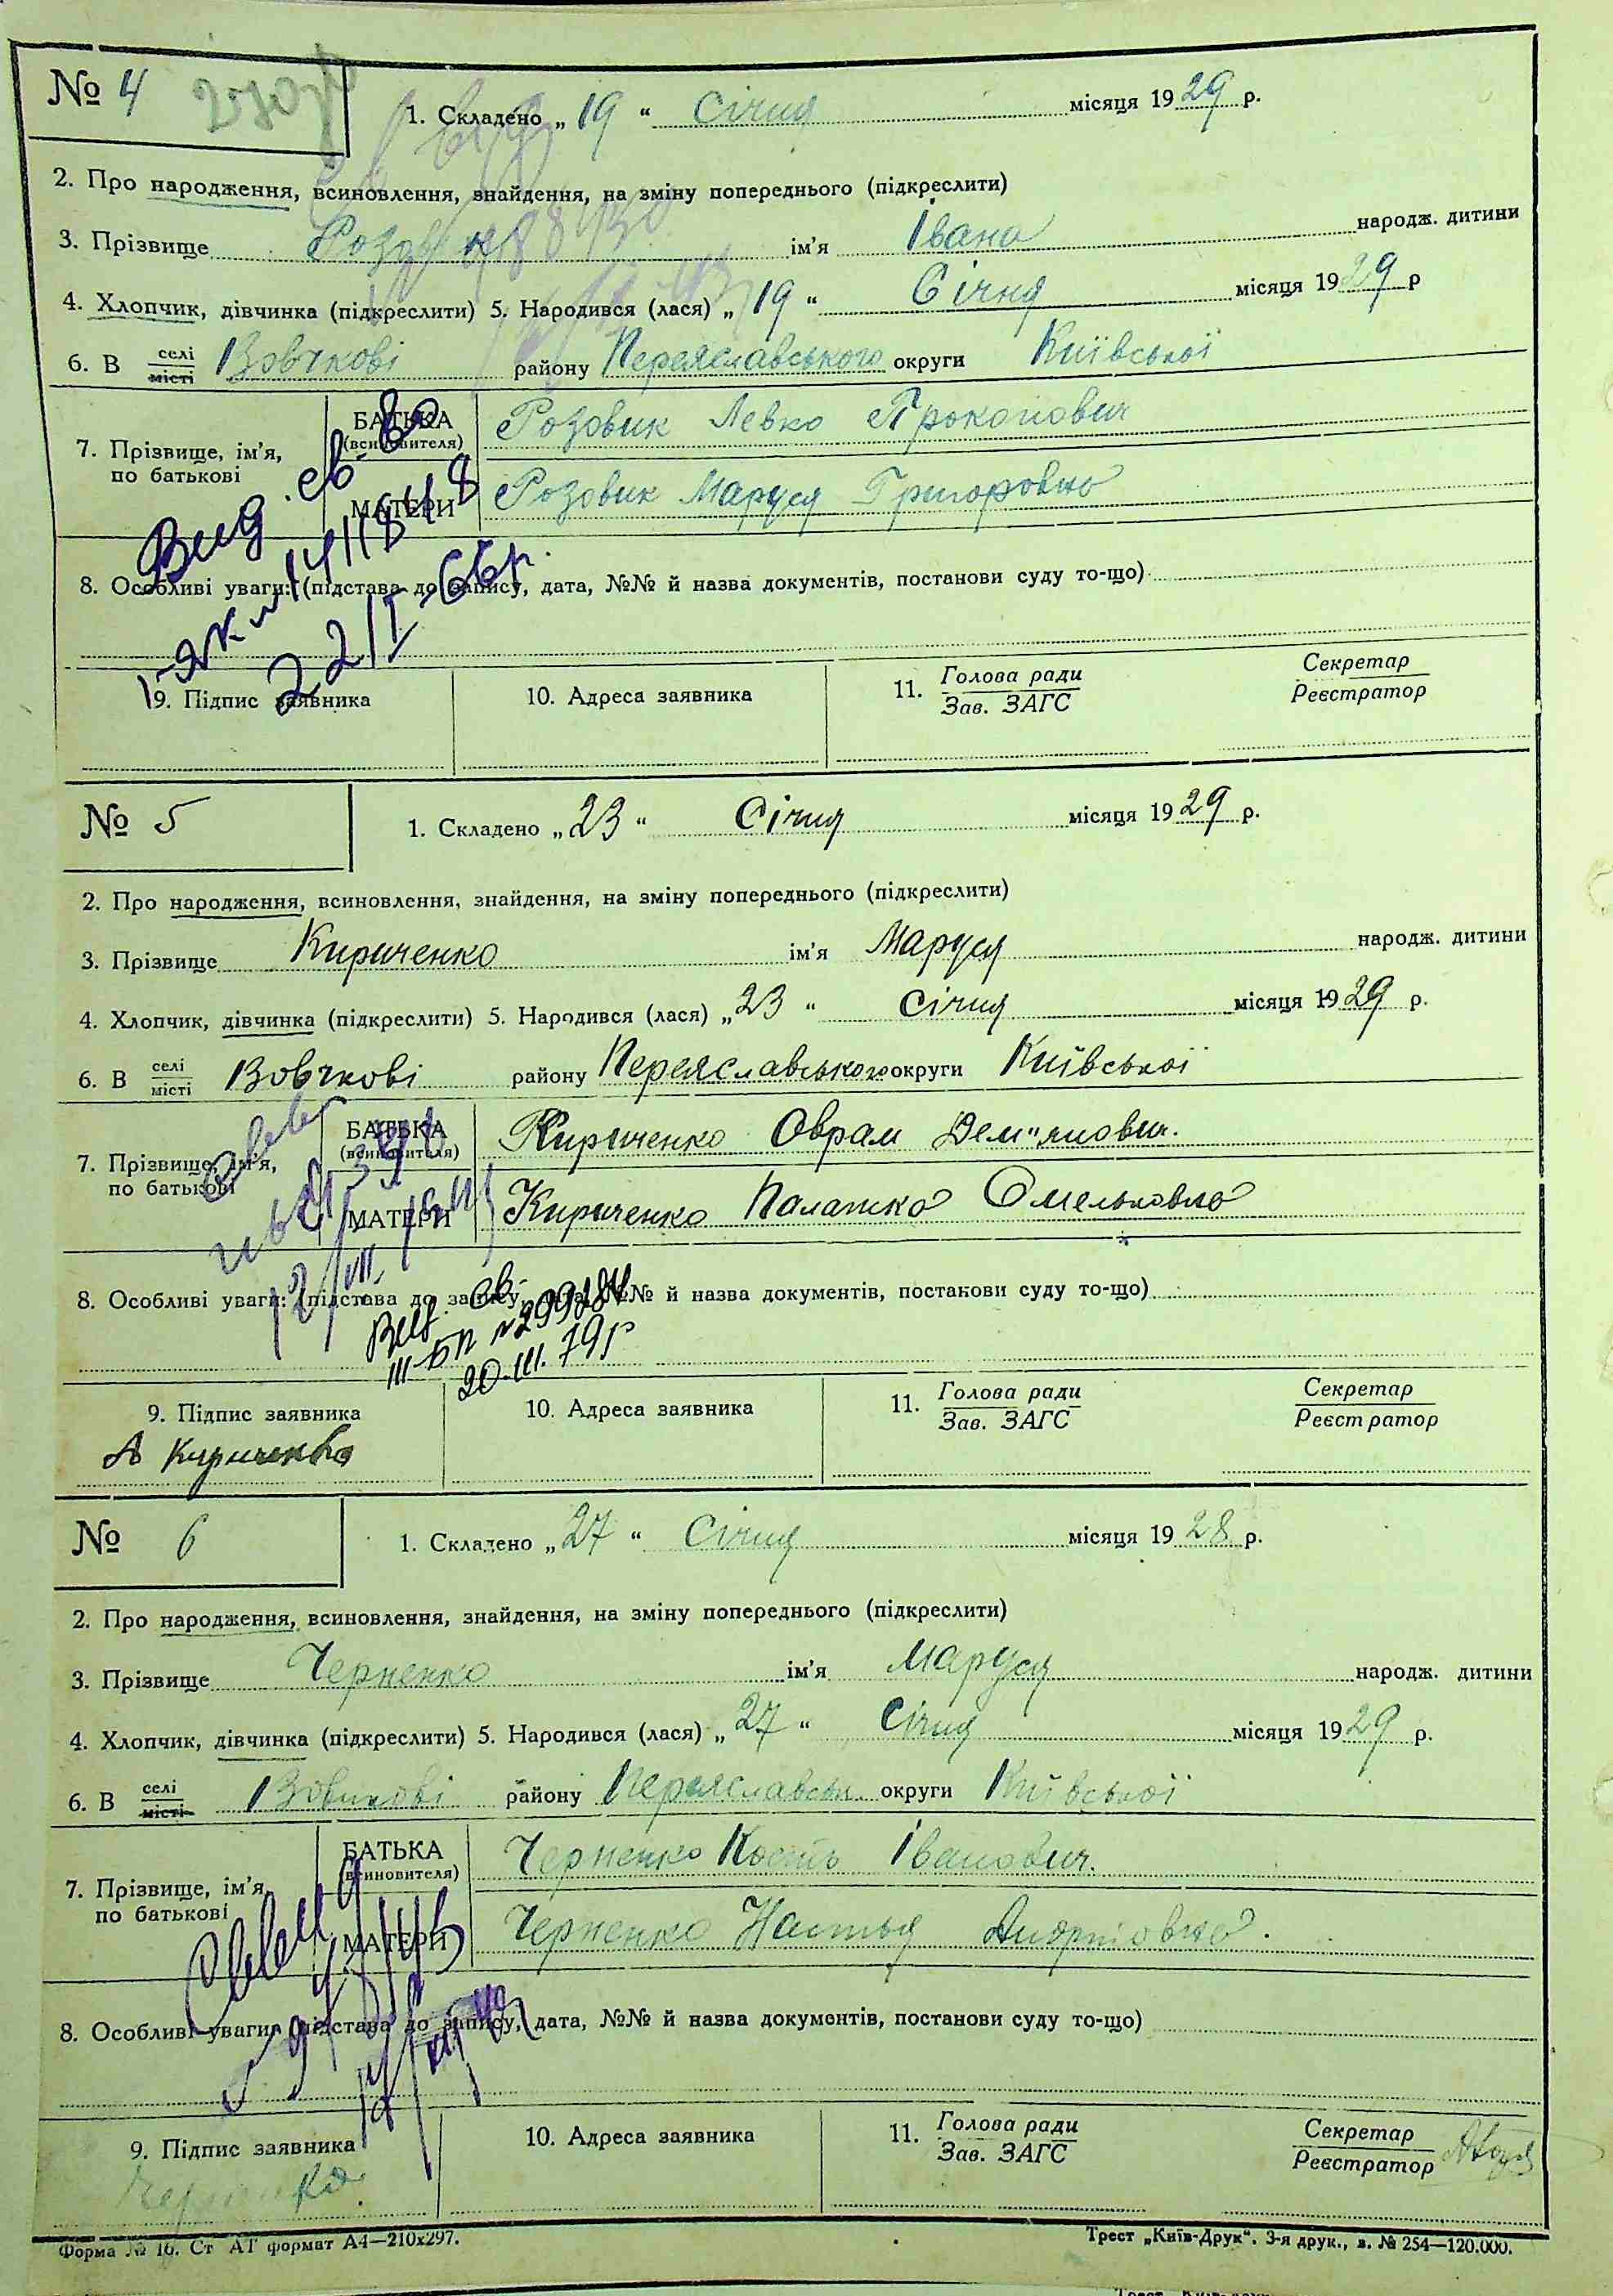 № 4
1. Складено „ 19 “ Січня місяця 1929 р.
2. Про народження, всиновлення, знайдення, на зміну попереднього (підкреслити)
3. Прізвище Розовик ім’я Івано народж. дитини
4. Хлопчик, дівчинка (підкреслити) 5. Народився (лася) „ 19 “ Січня місяця 1929 р
6. В селі місті Вовчкові району Переяславського округи Київської
7. Прізвище, ім’я, по батькові
БАТЬКА (всиновителя) Розовик Левко Прокопович
МАТЕРИ Розовик Маруся Григоровно
8. Особливі уваги: (підстава до запису, дата, №№ й назва документів, постанови суду то-що)
22/I-66р.
9. Підпис заявника 10. Адреса заявника 11. Голова ради Зав. ЗАГС Секретар Реєстратор
№ 5
1. Складено „ 23 “ Січня місяця 1929 р.
2. Про народження, всиновлення, знайдення, на зміну попереднього (підкреслити)
3. Прізвище Кириченко ім’я Маруся народж. дитини
4. Хлопчик, дівчинка (підкреслити) 5. Народився (лася) „ 23 “ Січня місяця 1929 р.
6. В селі місті Вовчкові району Переяславського округи Київської
7. Прізвище, ім’я, по батькові
БАТЬКА (всиновителя) Кириченко Оврам Дем"янович.
МАТЕРИ Кириченко Палажко Омельковно
8. Особливі уваги: (підстава до запису, дата, №№ й назва документів, постанови суду то-що)
20.III.79р
9. Підпис заявника 10. Адреса заявника 11. Голова ради Зав. ЗАГС Секретар Реєстратор
А Кириченко
№ 6
1. Складено „ 27 “ Січня місяця 1928 р.
2. Про народження, всиновлення, знайдення, на зміну попереднього (підкреслити)
3. Прізвище Черненко ім’я Маруся народж. дитини
4. Хлопчик, дівчинка (підкреслити) 5. Народився (лася) „ 27 “ Січня місяця 1929 р.
6. В селі місті Вовчкові району Переяславськ. округи Київської
7. Прізвище, ім’я, по батькові
БАТЬКА (всиновителя) Черненко Кость Іванович.
МАТЕРИ Черненко Настья Андріовно.
8. Особливі уваги: (підстава до запису, дата, №№ й назва документів, постанови суду то-що)
9. Підпис заявника 10. Адреса заявника 11. Голова ради Зав. ЗАГС Секретар Реєстратор
Форма № 16. Ст АТ формат А4—210х297. Трест „Київ-Друк“. 3-я друк., з. № 254—120.000.